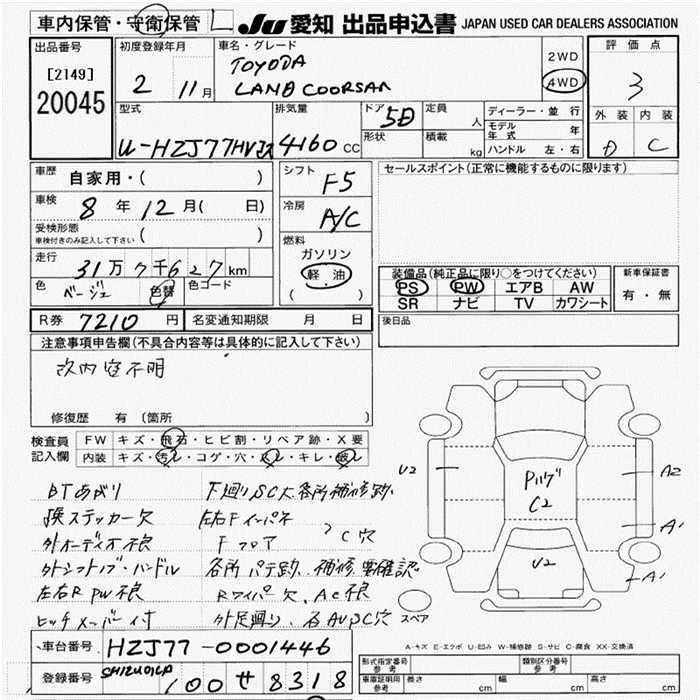 車内保管・守衛保管 JU 愛知 出品申込書 JAPAN USED CAR DEALERS ASSOCIATION
出品番号
[2149]
20045
初度登録年月
2 11月
車名・グレード
TOYODA
LAND COORSAR
2WD
4WD
評価点
3
外装 内装
D C
型式
U-HZJ77HV
排気量
4160 CC
ドア 5D
形状
定員 人
積載 kg
ディーラー・並行
モデル年式 年
ハンドル 左・右
車歴 自家用・( )
車検 8年 12月( 日)
受検形態
車検付きのみ記入して下さい ( )
走行 31万7千627km
色 ベージュ 色替 色コード
シフト F5
冷房 A/C
燃料
ガソリン
軽油
( )
セールスポイント(正常に機能するものに限ります)
装備品(純正品に限り○をつけてください)
PS PW エアB AW
SR ナビ TV カワシート
新車保証書
有・無
R券 7210円 名変通知期限 月 日
後日品
注意事項申告欄(不具合内容等は具体的に記入して下さい)
改内容不明
修復歴 有 (箇所
検査員記入欄
FW キズ・飛石・ヒビ割・リペア跡・X要
内装 キズ・汚レ・コゲ・穴・スレ・キレ・破レ
BTあがり 下廻りSC大各所補修跡
ステッカー欠 左右Fインパネ
外オーディオ不良 Fフロア C穴
外シフトノブ・ハンドル 各所パテ跡、補修要確認
左右R PW不良 Rワイパー欠、AC不良
ヒッチメンバー付 外足廻り、
U2
Pルーフ
C2
U2
A2
A1
A1
スペア
A-キズ E-エクボ U-凹み W-補修跡 S-サビ C-腐食 XX-交換済
車台番号 HZJ77-0001446
登録番号 SHIZUOKA 100 せ 8318
形式指定番号 参考
類別区分番号 参考
車庫証明用 参考 長さ cm 幅 cm 高さ cm